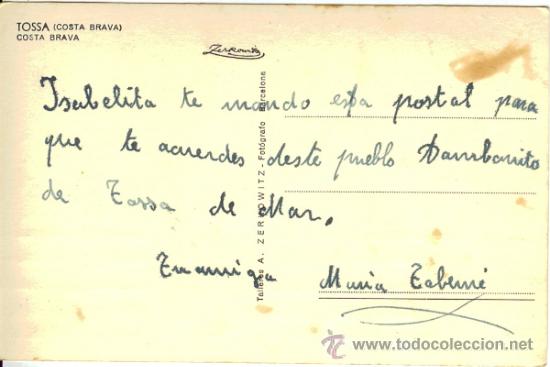 TOSSA (COSTA BRAVA)
COSTA BRAVA
Zerkowitz
Isabelita te mando esta postal para
que te acuerdes deste pueblo Tanrbonito
de Tossa de Mar.
Tu amiga María Taberné
Talleres A. ZERKOWITZ - Fotógrafo Barcelona
todocoleccion
www.todocoleccion.net